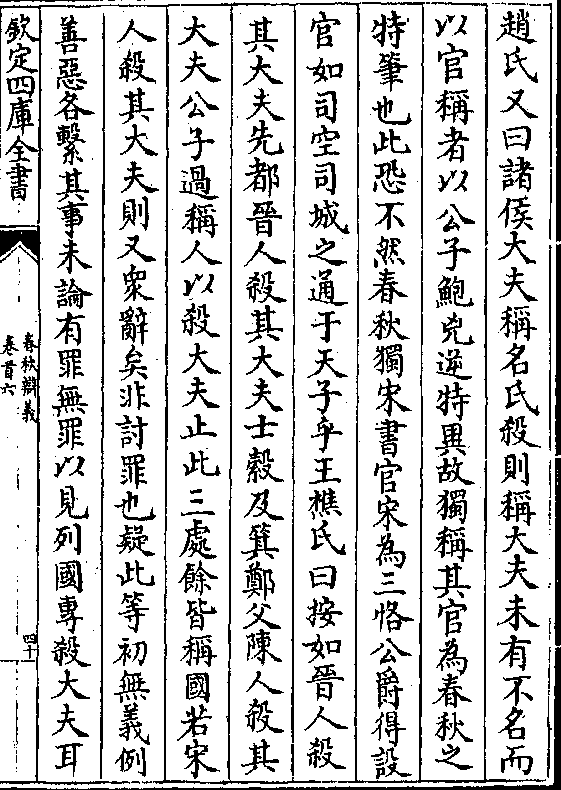 趙氏又曰諸侯大夫稱名氏殺則稱大夫未有不名而
以官稱者以公子鮑兇逆特異故獨稱其官為春秋之
特筆也此恐不然春秋獨宋書官宋為三恪公爵得設
官如司空司城之通于天子乎王樵氏曰按如晉人殺
其大夫先都晉人殺其大夫士縠及箕鄭父陳人殺其
大夫公子過稱人以殺大夫止此三處餘皆稱國若宋
人殺其大夫則又衆辭矣非討罪也疑此等初無義例
善惡各繫其事未論有罪無罪以見列國專殺大夫耳
欽定四庫全書
春秋辯義
卷首六
四十